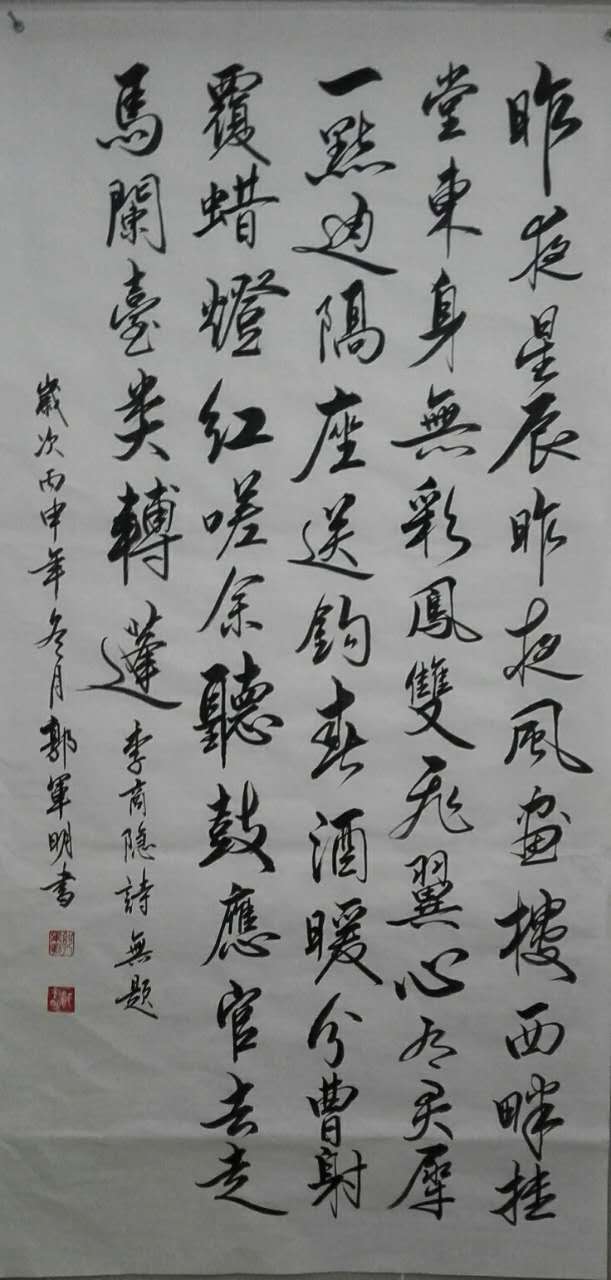 昨夜星辰昨夜風畫樓西畔挂
堂東身無彩鳳雙飛翼心有灵犀
一點边隔座送鈎春酒暖分曹射
覆蜡燈红嗟余聽鼓應官去走
馬闌臺类轉蓬 李商隐詩無題
歲次丙申年冬月郭軍明书